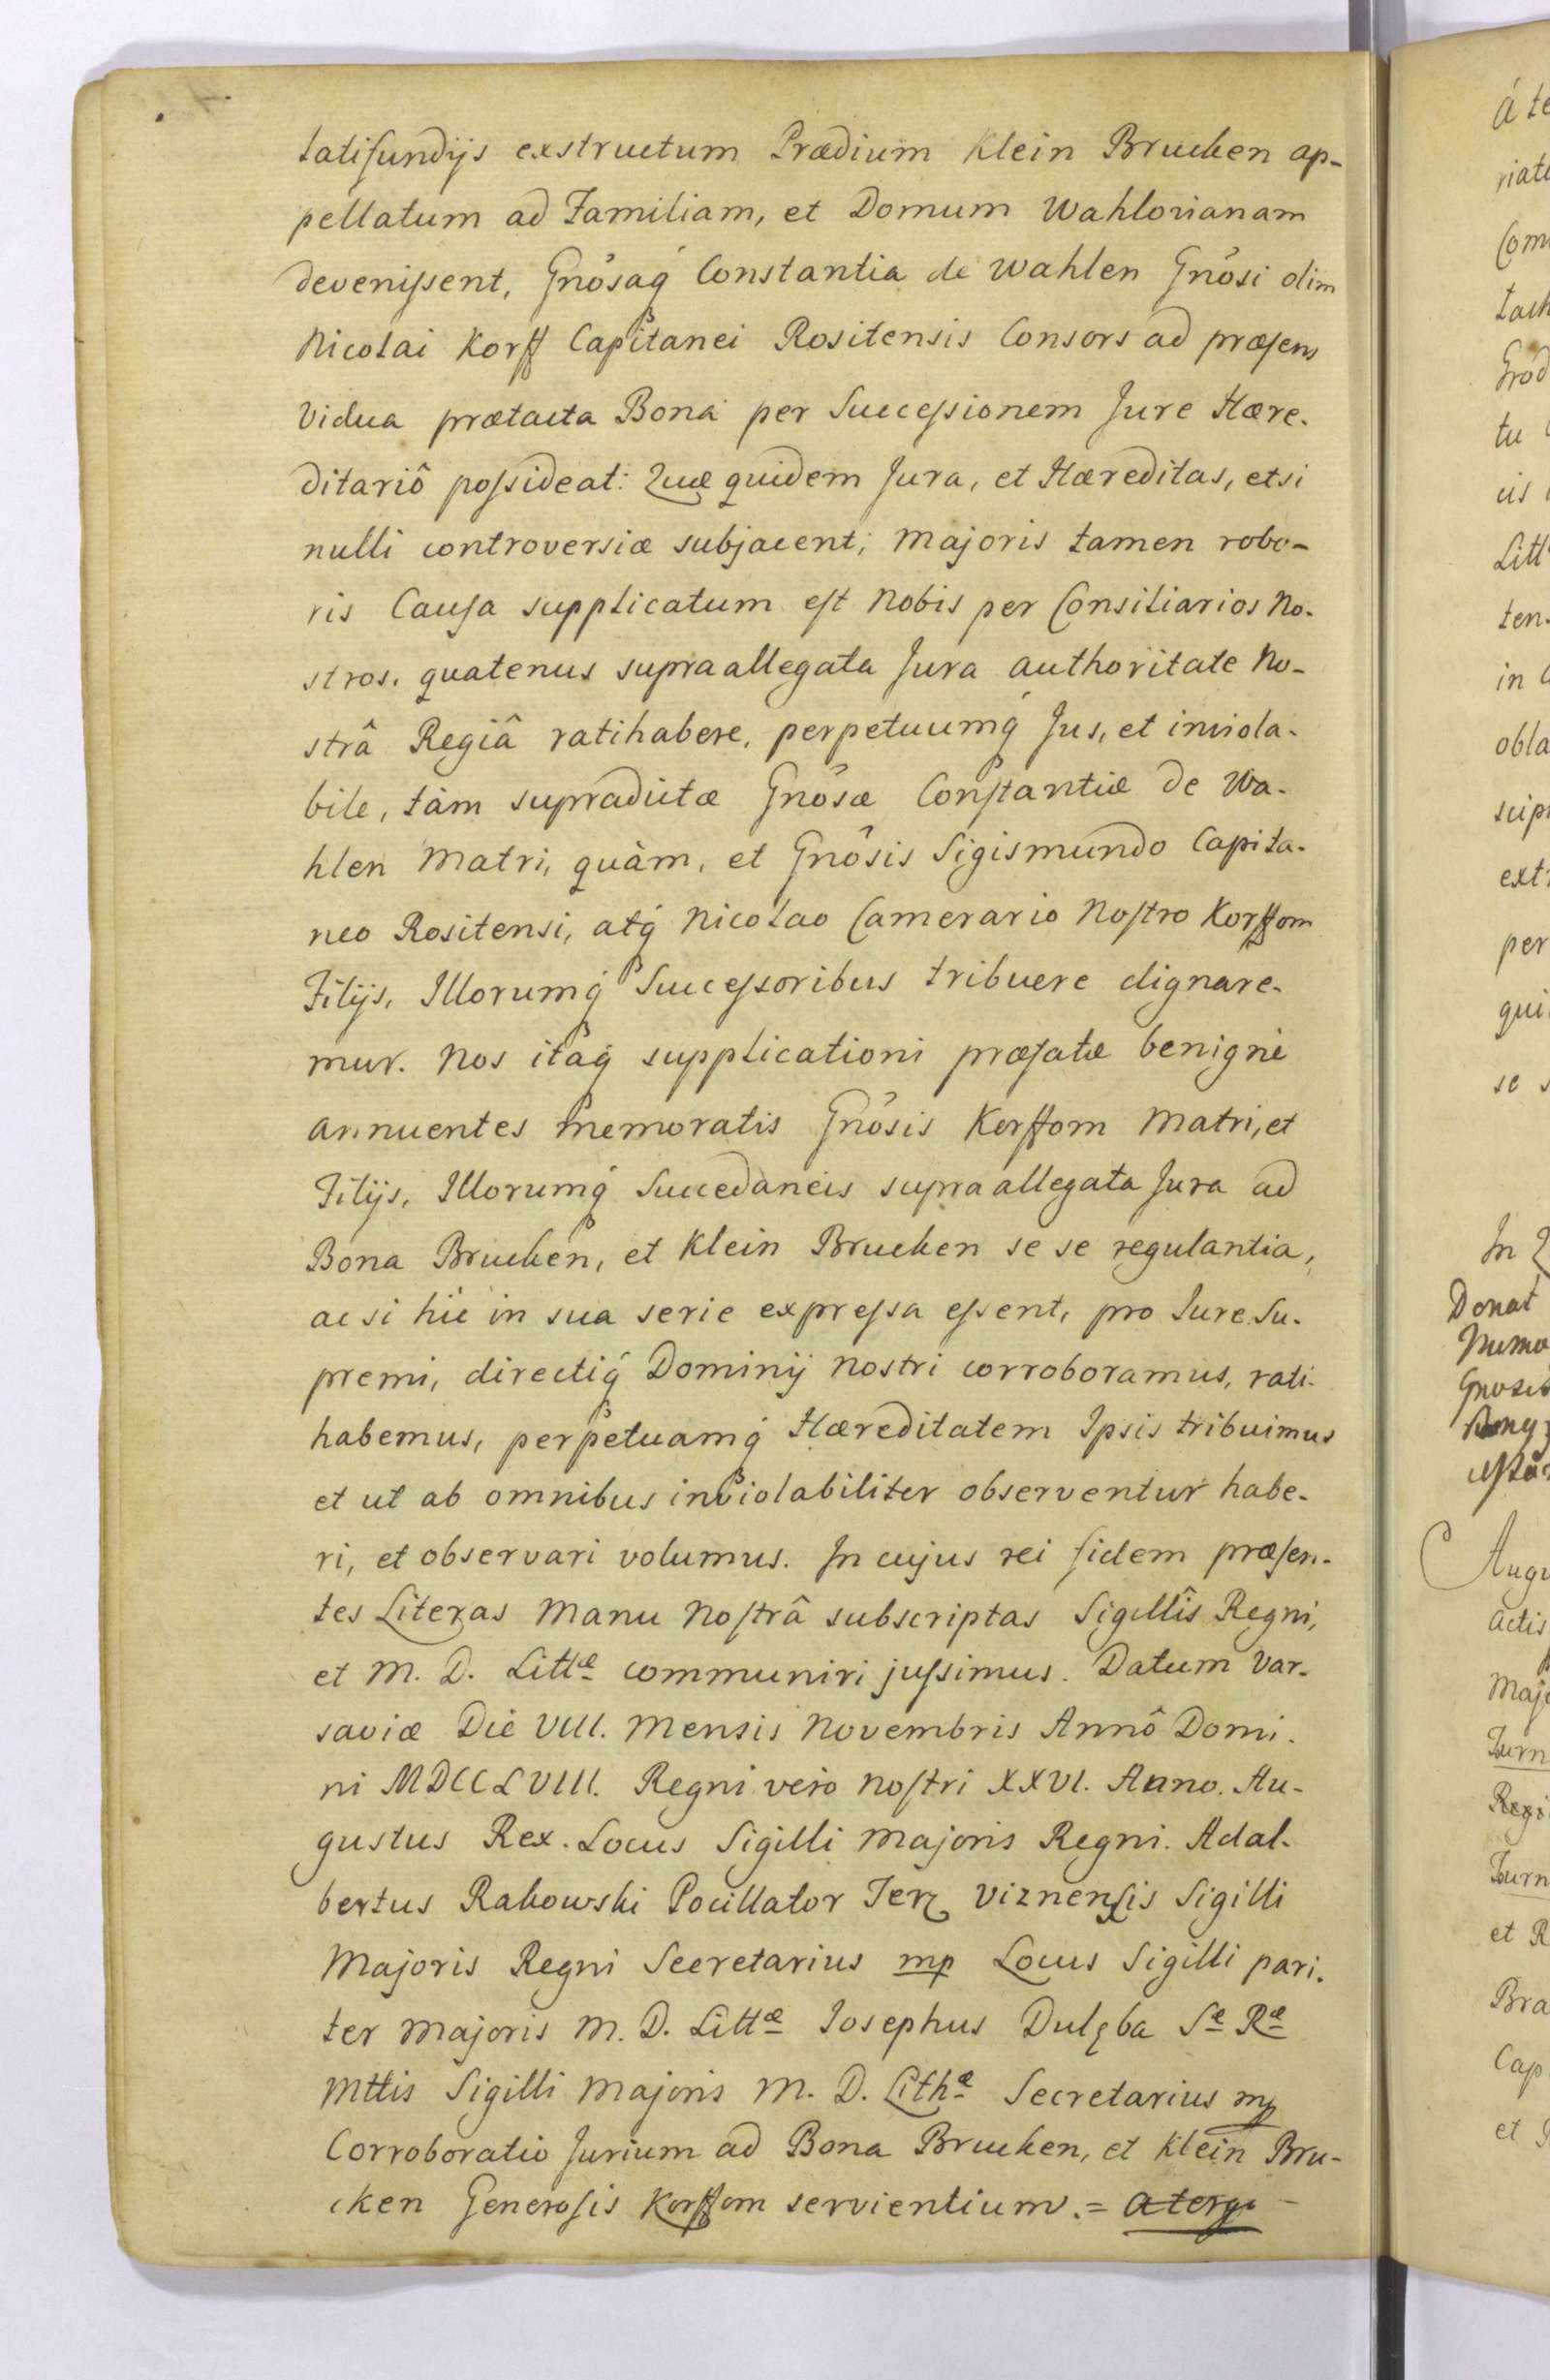 latifundijs exstructum Prædium Klein Brucken ap-
pellatum ad Familiam, et Domum Wahlorianam
devenissent, Gnõsaq́ Constantia de Wahlen Gnõsi olim
Nicolai Korff Capitanei Rositensis Consors ad præsens
Vidua prætacta Bona per Successionem Jure Hære-
ditariô possideat: Quæ quidem Jura, et Hæreditas, etsi
nulli controversiæ subjacent; majoris tamen robo-
ris Causa supplicatum est Nobis per Consiliarios No-
stros. quatenus supra allegata Jura authoritate No-
strâ Regiâ ratihabere, perpetuumq́ Jus, et inviola-
bile, tàm supradictæ Gnõsæ Constantiæ de Wa-
hlen Matri, quàm, et Gnõsis Sigismundo Capita-
neo Rositensi, atq́ Nicolao Camerario Nostro Korffom
Filijs, Illorumq́ Successoribus tribuere dignare-
mur. Nos itaq́ supplicationi præfatæ benignè
annuentes memoratis Gnõsis Korffom Matri, et
Filijs, Illorumq́ Succedaneis supra allegata Jura ad
Bona Brucken, et Klein Brucken se se regulantia,
ac si hic in sua serie expressa essent, pro Jure Su-
premi, directiq́ Dominij Nostri corroboramus, rati-
habemus, perpetuamq́ Hæreditatem Ipsis tribuimus
et ut ab omnibus inviolabiliter observentur habe-
ri, et observari volumus. In cujus rei fidem præsen-
tes Literas Manu Nostrâ subscriptas Sigillîs Regni,
et M. D. Littæ communiri jussimus. Datum Var-
saviæ Die VIII. Mensis Novembris Annô Domi-
ni MDCCLVIII. Regni verò Nostri XXVI. Anno. Au-
gustus Rex. Locus Sigilli Majoris Regni. Adal-
bertus Rakowski Pocillator Terz Viznensis Sigilli
Majoris Regni Secretarius mp Locus Sigilli pari-
ter Majoris M. D. Littæ Josephus Dulęba Sæ Ræ
Mttis Sigilli Majoris M. D. Lithæ Secretarius mp
Corroboratio Jurium ad Bona Brucken, et Klein Bru-
cken Generosis Korffom servientium. = A tergo -
In
Donat
Litt
ten-
in
obla
extr
per
qui
se
Actis
Majo
et R
Bra
Cap
et